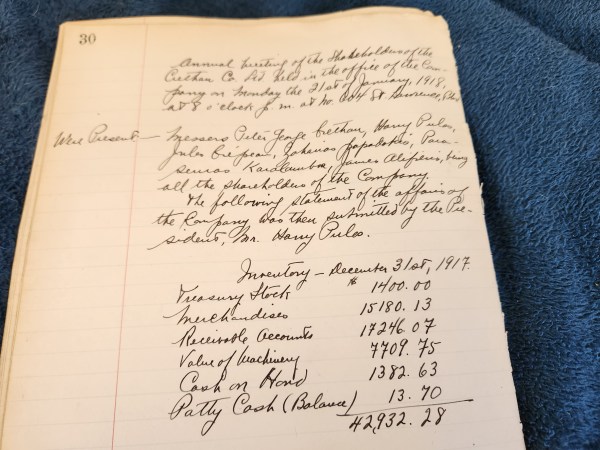 30
Annual meeting of the Shakeholders of the
Crethan Co Ltd held in the office of the Com-
pany on Monday the 21st of January, 1918,
at 8 o'clock p.m. at No. St Lawrence,
Were Present — Messers Peter George Crethan, Harry Pulos,
Jules Zaharias Papadakis, Para-
Karalambos, James being
all the shareholders of the Company.
The following statement of the affairs of
the Kompany was then submitted by the Pre-
sident, Mr. Harry Pulos.
Inventory — December 31st, 1917.
Treasury Stock $ 1400.00
Merchandises 15180.13
Receivable Accounts 17246.07
Value of Machinery 7709.75
Cash on Hand 1382.63
Patty Cash (Balance) 13.70
42,932.28